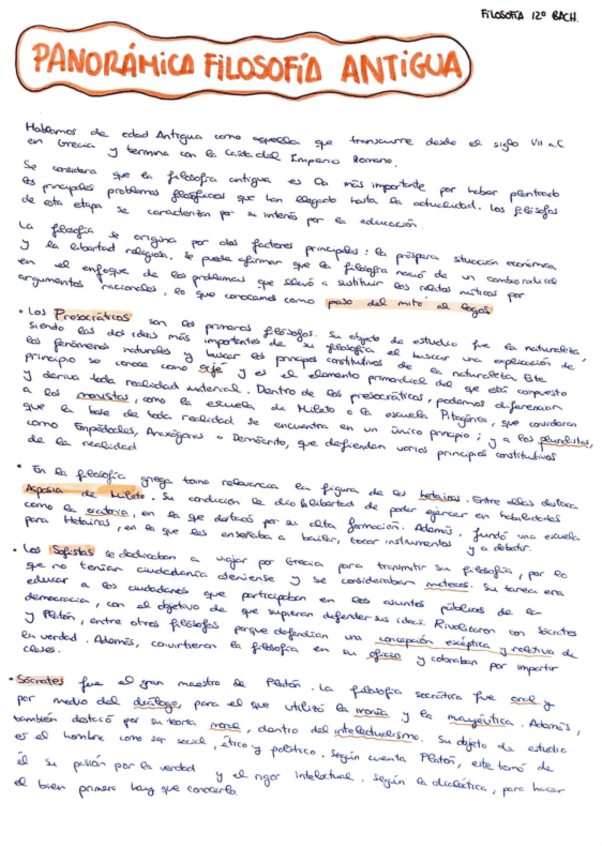 FILOSOFÍA 12º BACH.
PANORÁMICA FILOSOFÍA ANTIGUA
Hablamos de edad Antigua como aquella que transcurre desde el siglo VII a.C
en Grecia y termina con la Caída del Imperio Romano.
Se considera que la filosofía antigua es la más importante por haber planteado
los principales problemas filosóficos que han llegado hasta la actualidad. Los filósofos
de esta etapa se caracterizan por su interés por la educación.
La filosofía se origina por dos factores principales: la próspera situación económica
y la libertad religiosa. Se puede afirmar que la filosofía nació de un cambio radical
en el enfoque de los problemas que llevó a sustituir los relatos míticos por
argumentos racionales, lo que conocemos como paso del mito al logos
• Los Presocráticos son los primeros filósofos. Su objeto de estudio fue la naturaleza,
siendo las dos ideas más importantes de su filosofía el buscar una explicación de
los fenómenos naturales y buscar los principios constitutivos de la naturaleza. Este
principio se conoce como arjé y es el elemento primordial del que está compuesto
y deriva toda realidad material. Dentro de los presocráticos, podemos diferenciar
a los monistas, como la escuela de Mileto o la escuela Pitagórica, que consideran
que la base de toda realidad se encuentra en un único principio; y a los pluralistas,
como Empédocles, Anaxágoras o Demócrito, que defienden varios principios constitutivos
de la realidad
• En la filosofía griega toma relevancia la figura de las hetairas. Entre ellas destaca
Aspasia de Mileto. Su condición le dio la libertad de poder ejercer en habilidades
como la oratoria, en la que destacó por su alta formación. Además, fundó una escuela
para Hetairas, en la que las enseñaba a bailar, tocar instrumentos y a debatir.
• Los Sofistas se dedicaban a viajar por Grecia para transmitir su filosofía, por lo
que no tenían ciudadanía ateniense y se consideraban metecos. Su tarea era
educar a los ciudadanos que participaban en los asuntos públicos de la
democracia, con el objetivo de que supieran defender sus ideas. Rivalizaron con Sócrates
y Platón, entre otros filósofos porque defendían una concepción escéptica y relativa de
la verdad. Además, convirtieron la filosofía en su oficio y cobraban por impartir
clases.
• Sócrates fue el gran maestro de Platón. La filosofía socrática fue oral y
por medio del diálogo, para el que utilizó la ironía y la mayéutica. Además,
también destacó por su teoría moral, dentro del intelectualismo. Su objeto de estudio
es el hombre como ser social, ético y político. Según cuenta Platón, este tomó de
él su pasión por la verdad y el rigor intelectual. Según la dialéctica, para hacer
el bien primero hay que conocerlo.